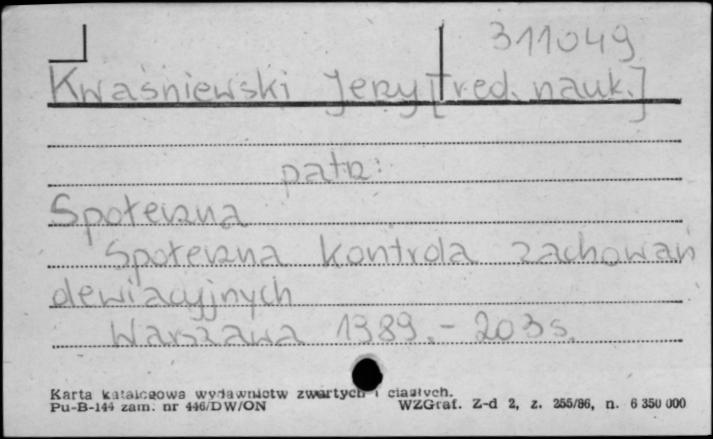 311049
Kwaśniewski Jerzy [red. nauk.]
patrz:
Społeczna
Społeczna kontrola zachowań
dewiacyjnych
Warszawa 1989. - 203 s.
Karta katalogowa wydawnictw zwartych i ciągłych.
Pu-B-144 zam. nr 446/DW/ON WZGraf. Z-d 2, z. 255/86, n. 6 350 000